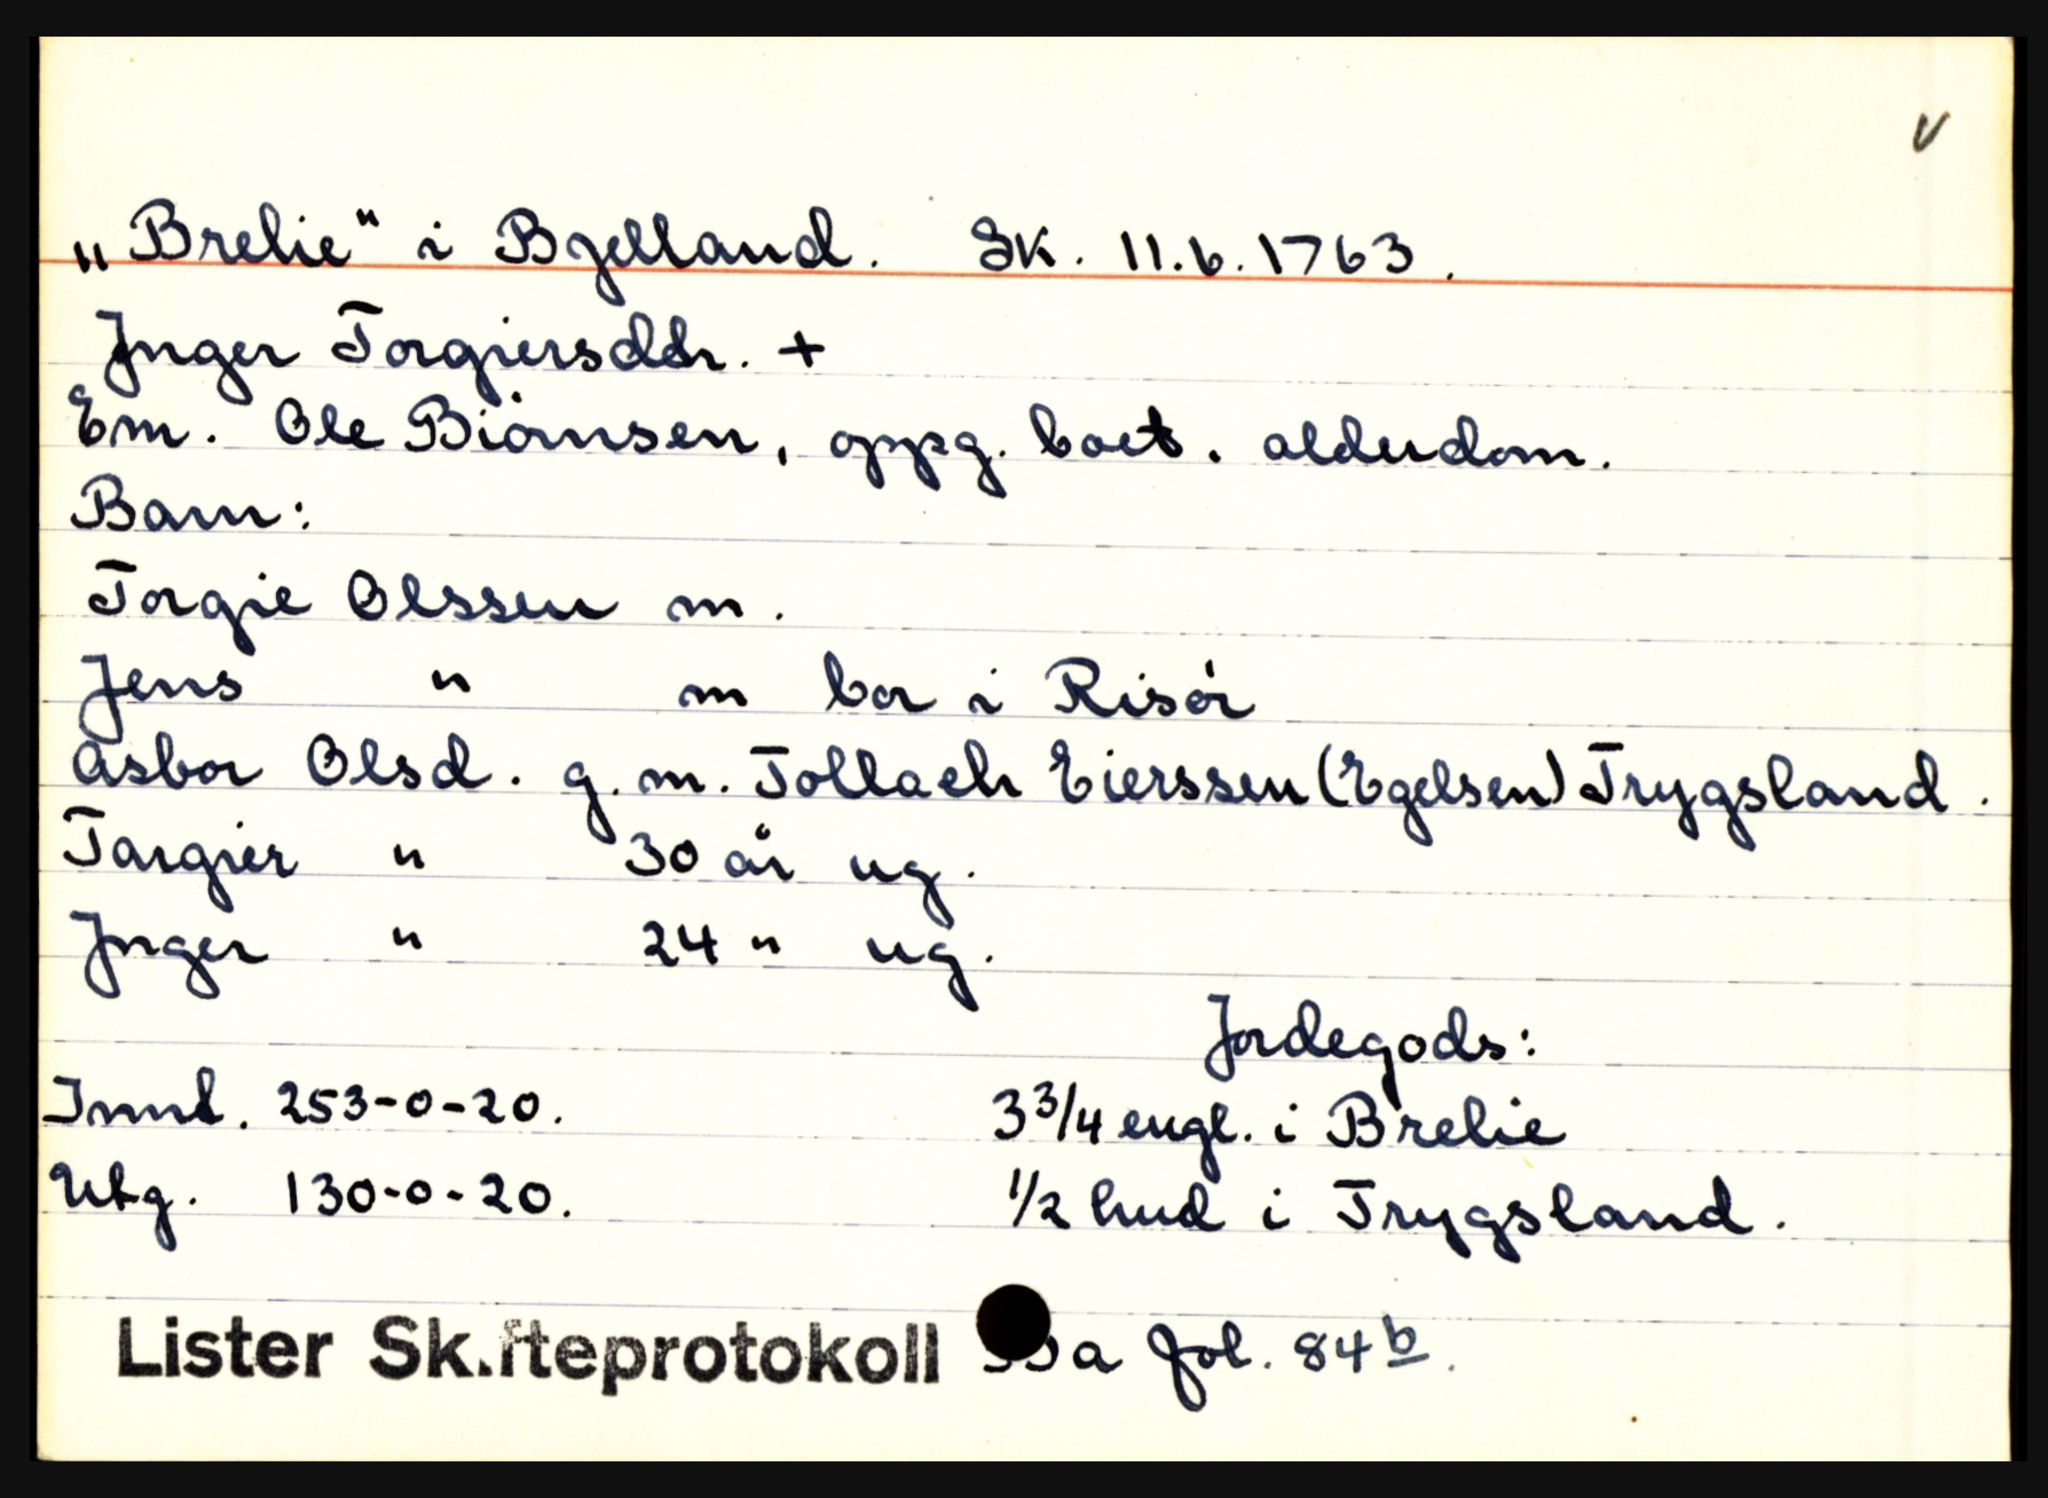 v
„Brelie" i Bjelland. Sk. 11.6.1763.
Jnger Torgiersdtr. +
Em. Ole Biörnsen, oppg. boet. alderdom.
Barn:
Torgie Olssen m.
Jens " m bor i Risör
Asbor Olsd. g.m. Tollach Eierssen (Egelsen) Trygsland.
Targier " 30 år ug.
Jnger " 24 " ug.
Jordegods:
Innt. 253-0-20. 3 3/4 engl. i Brelie
Utg. 130-0-20. 1/2 hud i Trygsland.
Lister Skifteprotokoll a fol. 84b.